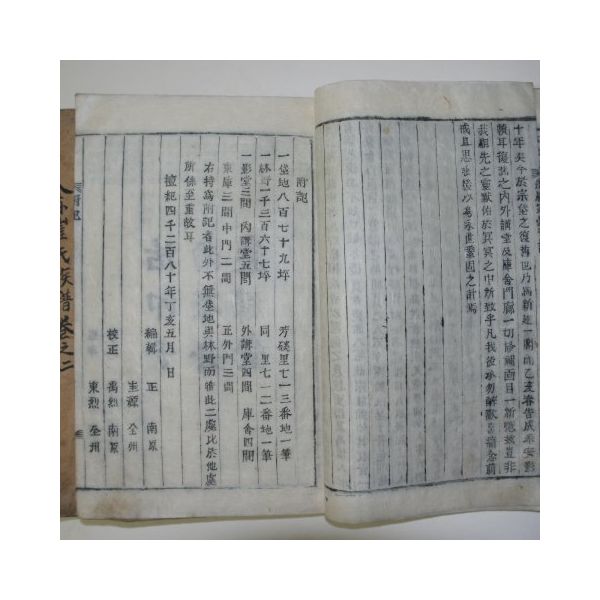 十年矣今於宗垈之復舊也乃爲新建一間乙亥春告成奉安影
幀耳復設之內外講堂及庫舍門廊一切修補面目一新猗歟豈非
我顯先之靈默佑於冥冥之中新致乎凡我後承勿解歡喜痛念前
戒且思孜孜以爲永世鞏固之計焉
附記
一垈地八百七十九坪 芳磎里七一三番地一筆
一林野一千三百六十七坪 同里七一二番地一筆
一影堂三間 內講堂五間 外講堂四間 庫舍四間
東庫三間中門二間 正外門三間
右特爲附記者此外不無垈地與林野而唯此二處比於他處
所係至重故耳
檀紀四千二百八十年丁亥五月 日
編輯 正 南原
圭源 全州
校正 禹烈 南原
東烈 全州
附記
氏族譜卷之二